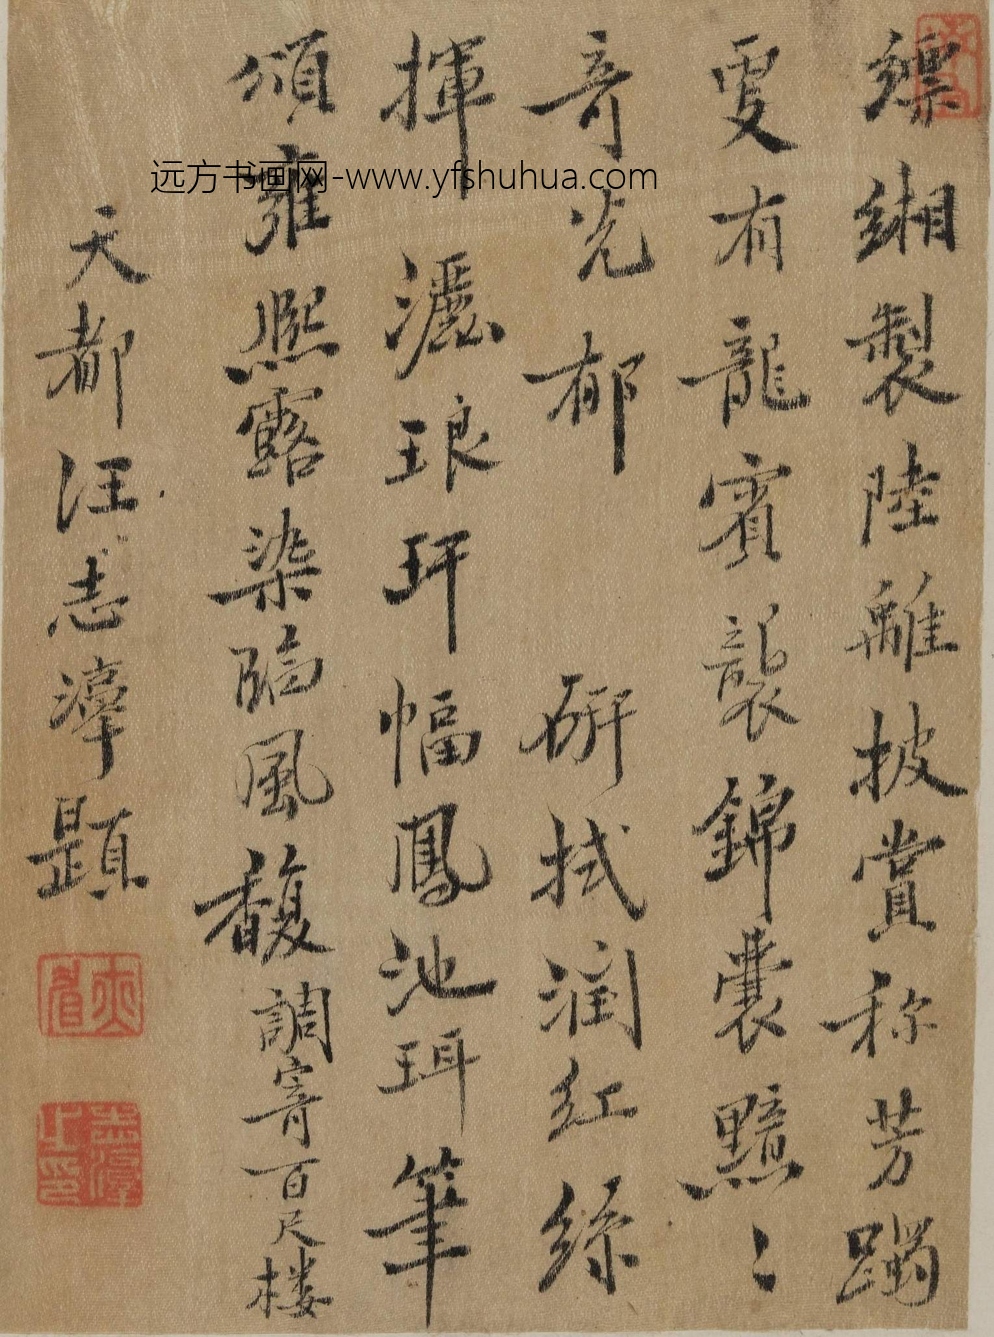 縹緗製陸離披賞称芳躅
更有龍賓襲錦囊黯〻
奇光郁 研拭潤紅絲
揮灑琅玕幅鳳池珥筆
頌雍熙露染臨風馥調寄百尺楼
天都汪志
題
志
之印
远方书画网-www.yfshuhua.com